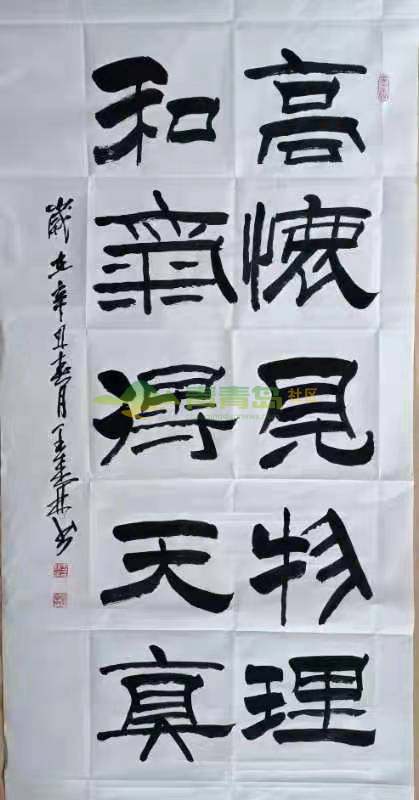 高懷見物理
和氣得天真
歲在辛丑春月王
青岛社区